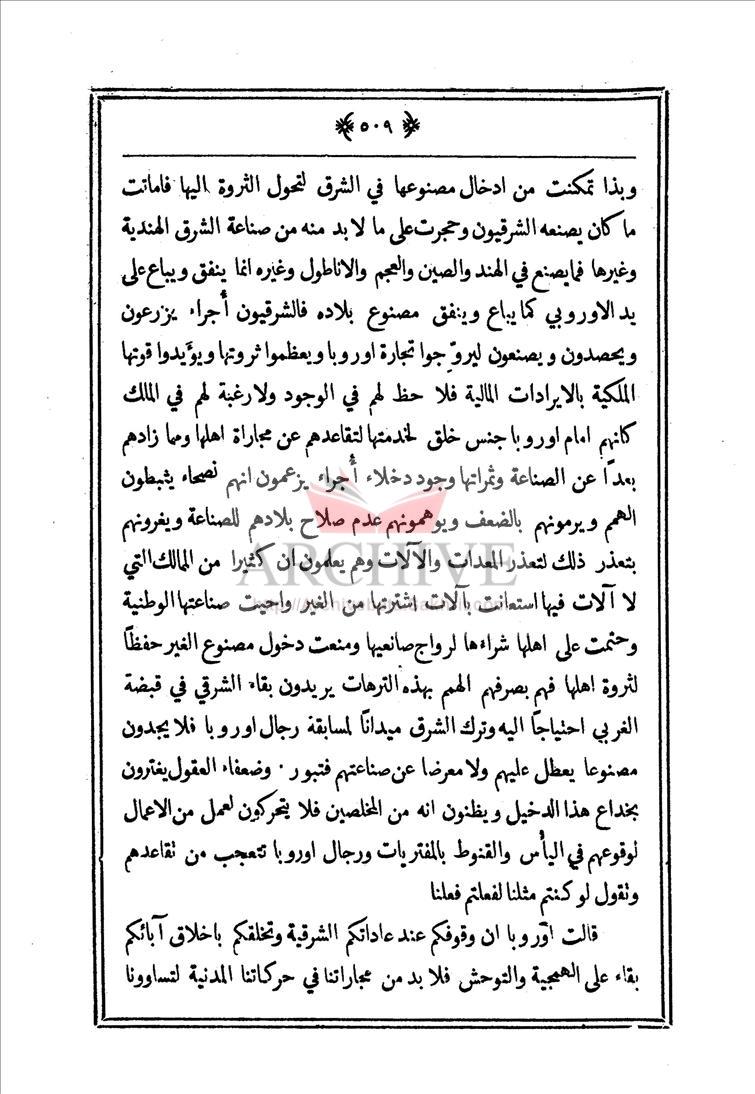 ﴿ ٥٠٩ ﴾
وبذا تمكنت من ادخال مصنوعها في الشرق لتحول الثروة اليها فاماتت
ما كان يصنعه الشرقيون وحجرت على ما لا بد منه من صناعة الشرق الهندية
وغيرها فما يصنع في الهند والصين والعجم والاناطول وغيره انما ينفق ويباع على
يد الاوروبي كما يباع وينفق مصنوع بلاده فالشرقيون أُجراء يزرعون
ويحصدون ويصنعون ليروّجوا تجارة اوروبا ويعظموا ثروتها ويؤيدوا قوتها
الملكية بالايرادات المالية فلا حظ لهم في الوجود ولا رغبة لهم في المالك
كانهم امام اوروبا جنس خلق لخدمتها لتقاعدهم عن مجاراة اهلها ومما زادهم
بعدًا عن الصناعة وثمراتها وجود دخلاء أُجراء يزعمون انهم نصحاء يثبطون
الهمم ويرمونهم بالضعف ويوهمونهم عدم صلاح بلادهم للصناعة ويغرونهم
بتعذر ذلك لتعذر المعدات والآلات وهم يعلمون ان كثيرا من المالك التي
لا آلات فيها استعانت بآلات اشترتها من الغير واحيت صناعتها الوطنية
وحتمت على اهلها شراءها لرواج صانعيها ومنعت دخول مصنوع الغير حفظًا
لثروة اهلها فهم بصرفهم الهمم بهذه الترهات يريدون بقاء الشرقي في قبضة
الغربي احتياجًا اليه وترك الشرق ميدانًا لمسابقة رجال اوروبا فلا يجدون
مصنوعا يعطل عليهم ولا معرضا عن صناعتهم فتبور . وضعفاء العقول يغترون
بخداع هذا الدخيل ويظنون انه من المخلصين فلا يتحركون لعمل من الاعمال
لوقوعهم في اليأس والقنوط بالمفتريات ورجال اوروبا تتعجب من تقاعدهم
وتقول لو كنتم مثلنا لفعلتم فعلنا
قالت اوروبا ان وقوفكم عند عاداتكم الشرقية وتخلقكم باخلاق آبائكم
بقاء على الهمجية والتوحش فلا بد من مجاراتنا في حركاتنا المدنية لتساوونا
ARCHIVE